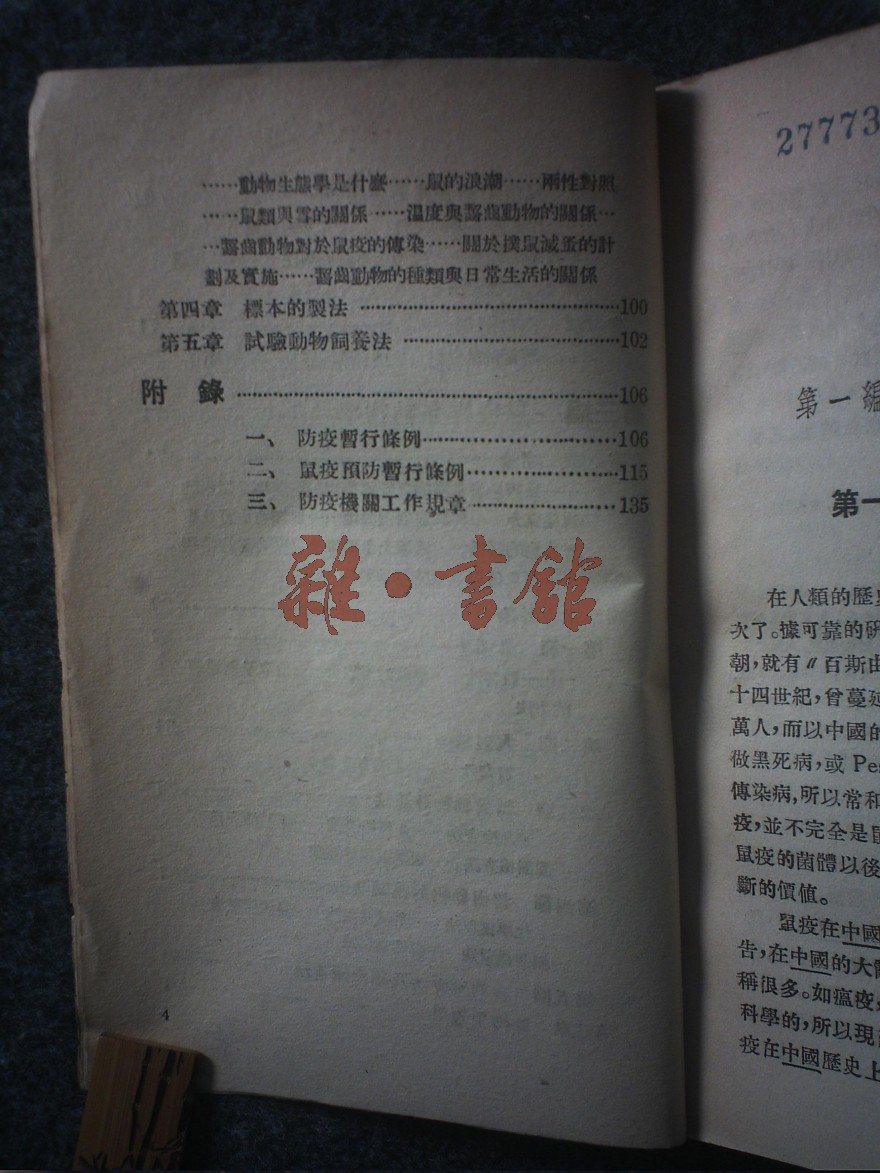 ……動物生態學是什麼……鼠的浪潮……兩性對照
……鼠類與雪的關係……温度與齧齒動物的關係…
…齧齒動物對於鼠疫的傳染……關於撲鼠滅蚤的計
劃及實施……齧齒動物的種類與日常生活的關係
第四章 標本的製法 ……100
第五章 試驗動物飼養法 ……102
附 錄 ……106
一、 防疫暫行條例……106
二、 鼠疫預防暫行條例……115
三、 防疫機關工作規章……135
雜·書館
4
27773
第一編
第一
在人類的歷史
次了。據可靠的研
朝,就有〃百斯由
十四世紀,曾蔓延
萬人,而以中國的
做黑死病,或 Pes
傳染病,所以常和
疫,並不完全是鼠
鼠疫的菌體以後
斷的價値。
鼠疫在中國
告,在中國的大
稱很多。如瘟疫,
科學的,所以現
疫在中國歷史上